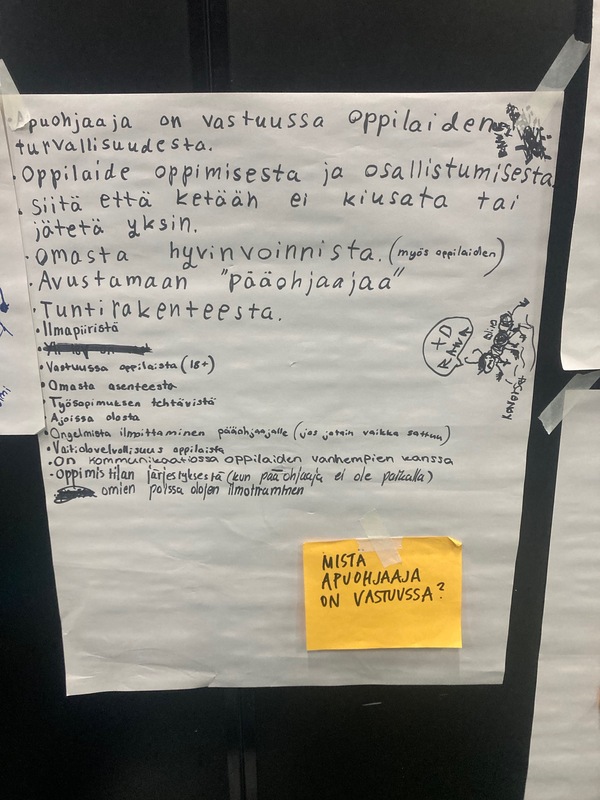 Apuohjaaja on vastuussa oppilaiden
turvallisuudesta.
Oppilaide oppimisesta ja osallistumisesta
Siitä että ketään ei kiusata tai
jätetä yksin.
Omasta hyvinvoinnista. (myös oppilaiden)
Avustamaan "pääohjaajaa"
Tuntirakenteesta.
Ilmapiiristä
Vastuussa oppilaista (18+)
Omasta asenteesta
Työsopimuksen tehtävistä
Ajoissa olosta
Ongelmista ilmoittaminen pääohjaajalle (jos jotain vaikka sattuu)
Vaitiolovelvollisuus oppilaista
On kommunikaatiossa oppilaiden vanhempien kanssa
Oppimistilan järjestyksestä (kun pääohjaaja ei ole paikalla)
omien poissa olojen ilmottaminen
XD
MISTÄ
APUOHJAAJA
ON VASTUUSSA?